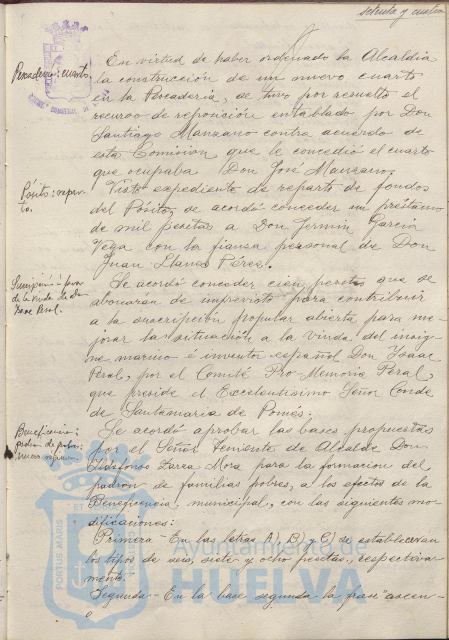 setenta y cuatro
Pescadería: cuarto.
En virtud de haber ordenado la Alcaldia
la construccion de un nuevo cuarto
en la Pescadería, se tuvo por resuelto el
recurso de reposición entablado por Don
Santiago Manzano contra acuerdo de
esta Comision que le concedió el cuarto
que ocupaba Don José Manzano.
Pósito: repar-
to.
Visto expediente de reparto de fondos
del Pósito, se acordó conceder un préstamo
de mil pesetas a Don Fermin Garcia
Vega con la fianza personal de Don
Juan Llanes Pérez.
Suscripción a favor
de la Viuda de Don
Isaac Peral.
Se acordó conceder cien pesetas que se
abonaran de imprevistos para contribuir
a la suscripción popular abierta para me-
jorar la situación a la viuda del insig-
ne marino é inventor español Don Isaac
Peral, por el Comité Pro-Memoria Peral,
que preside el Excelentisimo Señor Conde
de Santamaria de Pomés.
Beneficencia:
padron de pobres:
Se acordó aprobar las bases propuestas
por el Señor Teniente de Alcalde Don
Mora para la formacion del
padrón de familias pobres, a los efectos de la
Beneficencia, municipal, con las siguientes mo-
dificaciones:
Primera - En las letras A), B) y C) se establecerán
los tipos de seis, siete y ocho pesetas, respectiva-
mente.
Segunda - En la base segunda la frase "ascen-
PORTUS MARIS ET
Ayuntamiento de
HUELVA